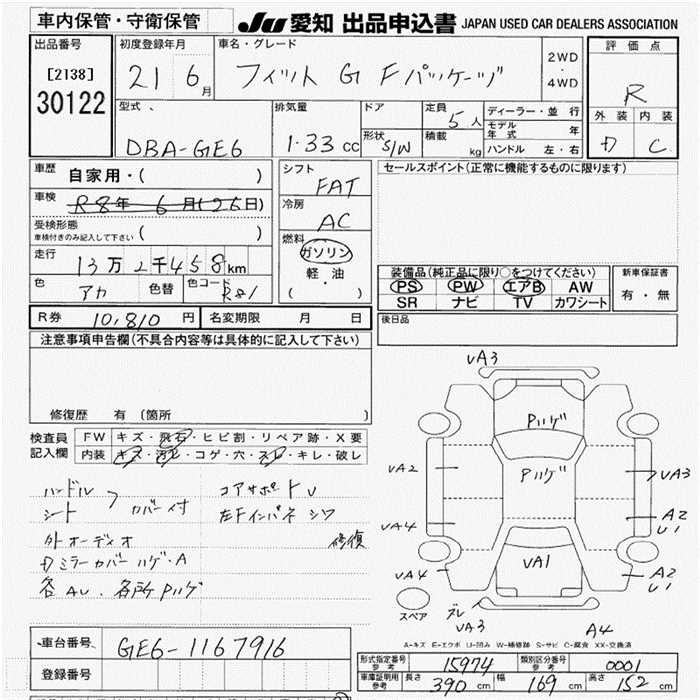 車内保管・守衛保管 JU 愛知 出品申込書 JAPAN USED CAR DEALERS ASSOCIATION
出品番号 初度登録年月 車名・グレード 2WD・4WD 評価点
[2138] 30122 21 6月 フィット G Fパッケージ R
型式 排気量 ドア 定員 ディーラー・並行 外装 内装
DBA-GE6 1.33cc 形状 S/W 5人 積載 kg モデル年式 年 ハンドル 左・右 D C
車歴 自家用・( ) シフト FAT セールスポイント(正常に機能するものに限ります)
車検 R8年 6月(26日) 冷房 AC
受検形態 車検付きのみ記入して下さい ( ) 燃料 ガソリン 軽・油 ( ・ )
走行 13万2千458km
色 アカ 色替 色コード R81
装備品(純正品に限り○をつけてください) 新車保証書
PS PW エアB AW 有・無
SR ナビ TV カワシート
R券 10,810円 名変期限 月 日 後日品
注意事項申告欄(不具合内容等は具体的に記入して下さい)
修復歴 有(箇所 )
検査員記入欄 FW キズ・飛石・ヒビ割・リペア跡・X要
内装 キズ・汚レ・コゲ・穴・スレ・キレ・破レ
ハンドル シート カバー付 コアサポートU
左Fインパネ シワ
外オーディオ 修復
Dミラーカバーハゲ・A
各AU・各所Pハゲ
VA3
Pハゲ
VA2 Pハゲ VA3
VA4 A2 U1
VA4 VA1 A2 U1
スペア ズレ VA3 A4
A=キズ E=エクボ U=凹み W=補修跡 S=サビ C=腐食 XX=交換済
車台番号 GE6-1167916
登録番号
形式指定番号 参考 15974 類別区分番号 参考 0001
車庫証明用 参考 長さ 390cm 幅 169cm 高さ 152cm